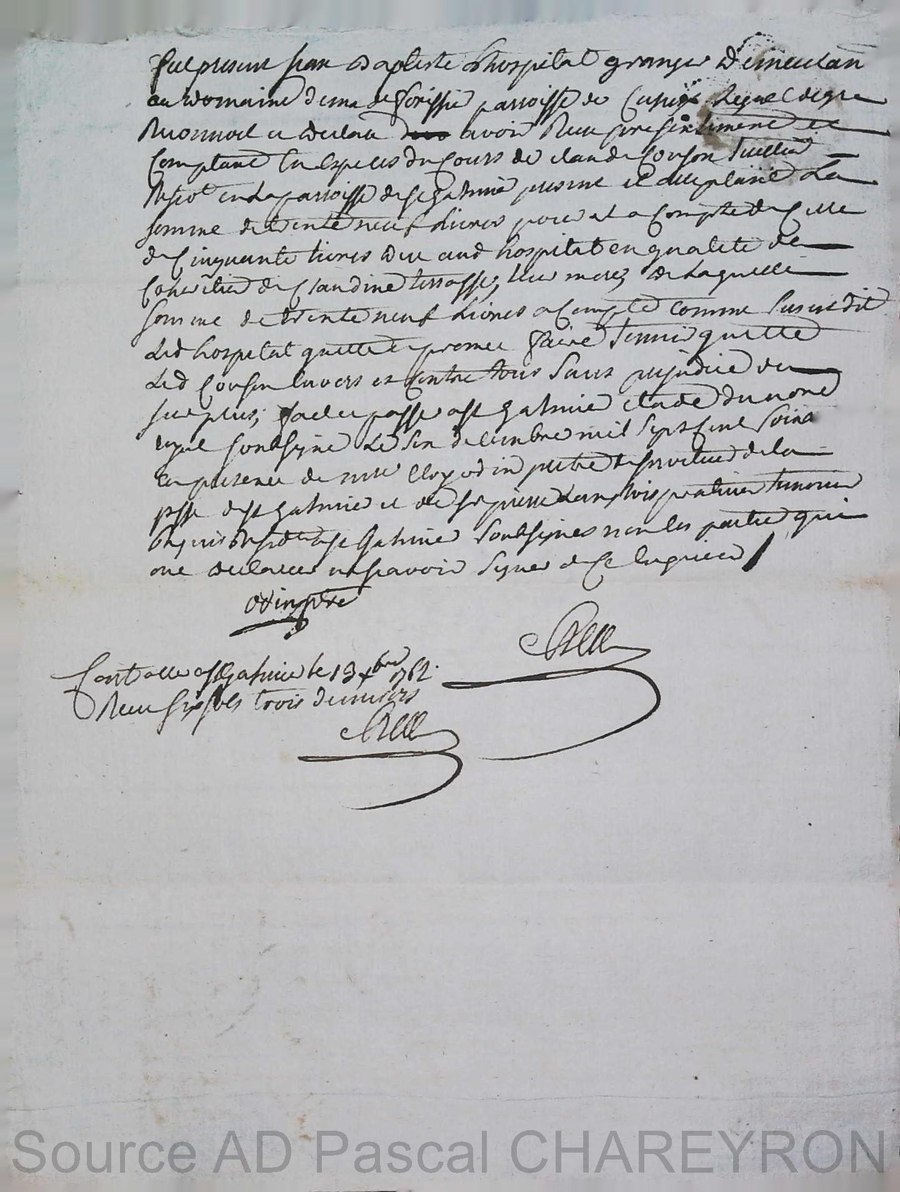 fut present jean Baptiste Lhospital granger Demeuran
au Domaine de ma de parroisse de Cuzieu Lequel de gre
Reconnoit et declare avoir Receu presentement et
Comptant en especes du Cours de Claude Couson
en la parroisse de St galmier present et acceptant La
somme de trente neuf Livres pour et a Compte de Celle
de Cinquante livres due aud hospital en qualité de
heritier de Claudine terrasse, sa mere, De Laquelle
somme de trente neuf Livres a Compte comme susest dit
Led hospital quitte et promet faire tenir quitte
Led Couson Envers et Contre tous sans prejudice du
surplus; fait et passé a St galmier etude du nore
royal soussigné Le six decembre mil sept cent soix
En presence de mre Odin pretre de la
psse de St galmier et de sr pierre praticien temoins
a St Galmier soussignes non les parties qui
ont declarees ne scavoir signer de Ce Enquises
Odin ptre
Controllé a St Galmier le 13 xbre 1762.
Receu six sols trois deniers
Source AD Pascal CHAREYRON